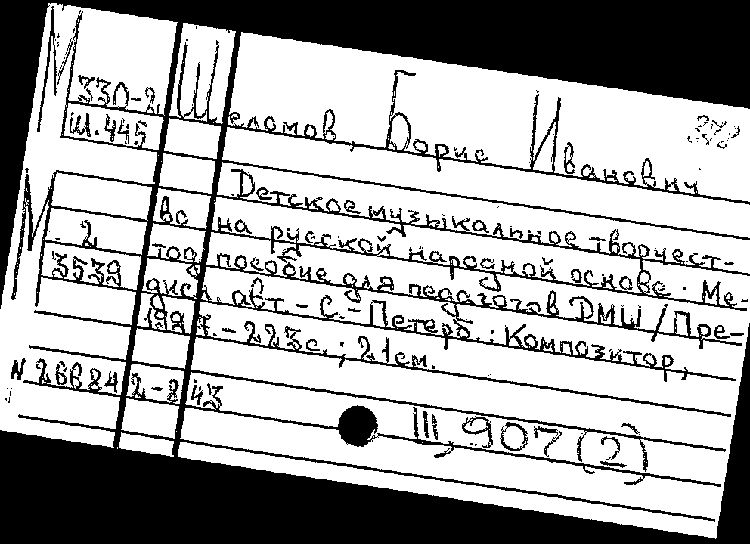 М 330-2 Шеломов, Борис Иванович
Ш.445
Детское музыкальное творчест-
во на русской народной основе. Ме-
М 2 тод. пособие для педагогов ДМШ / Пре-
3539 дисл. авт. - С.-Петерб.: Композитор,
1997. - 223с.; 21см.
2-8 43
III, 907 (2)